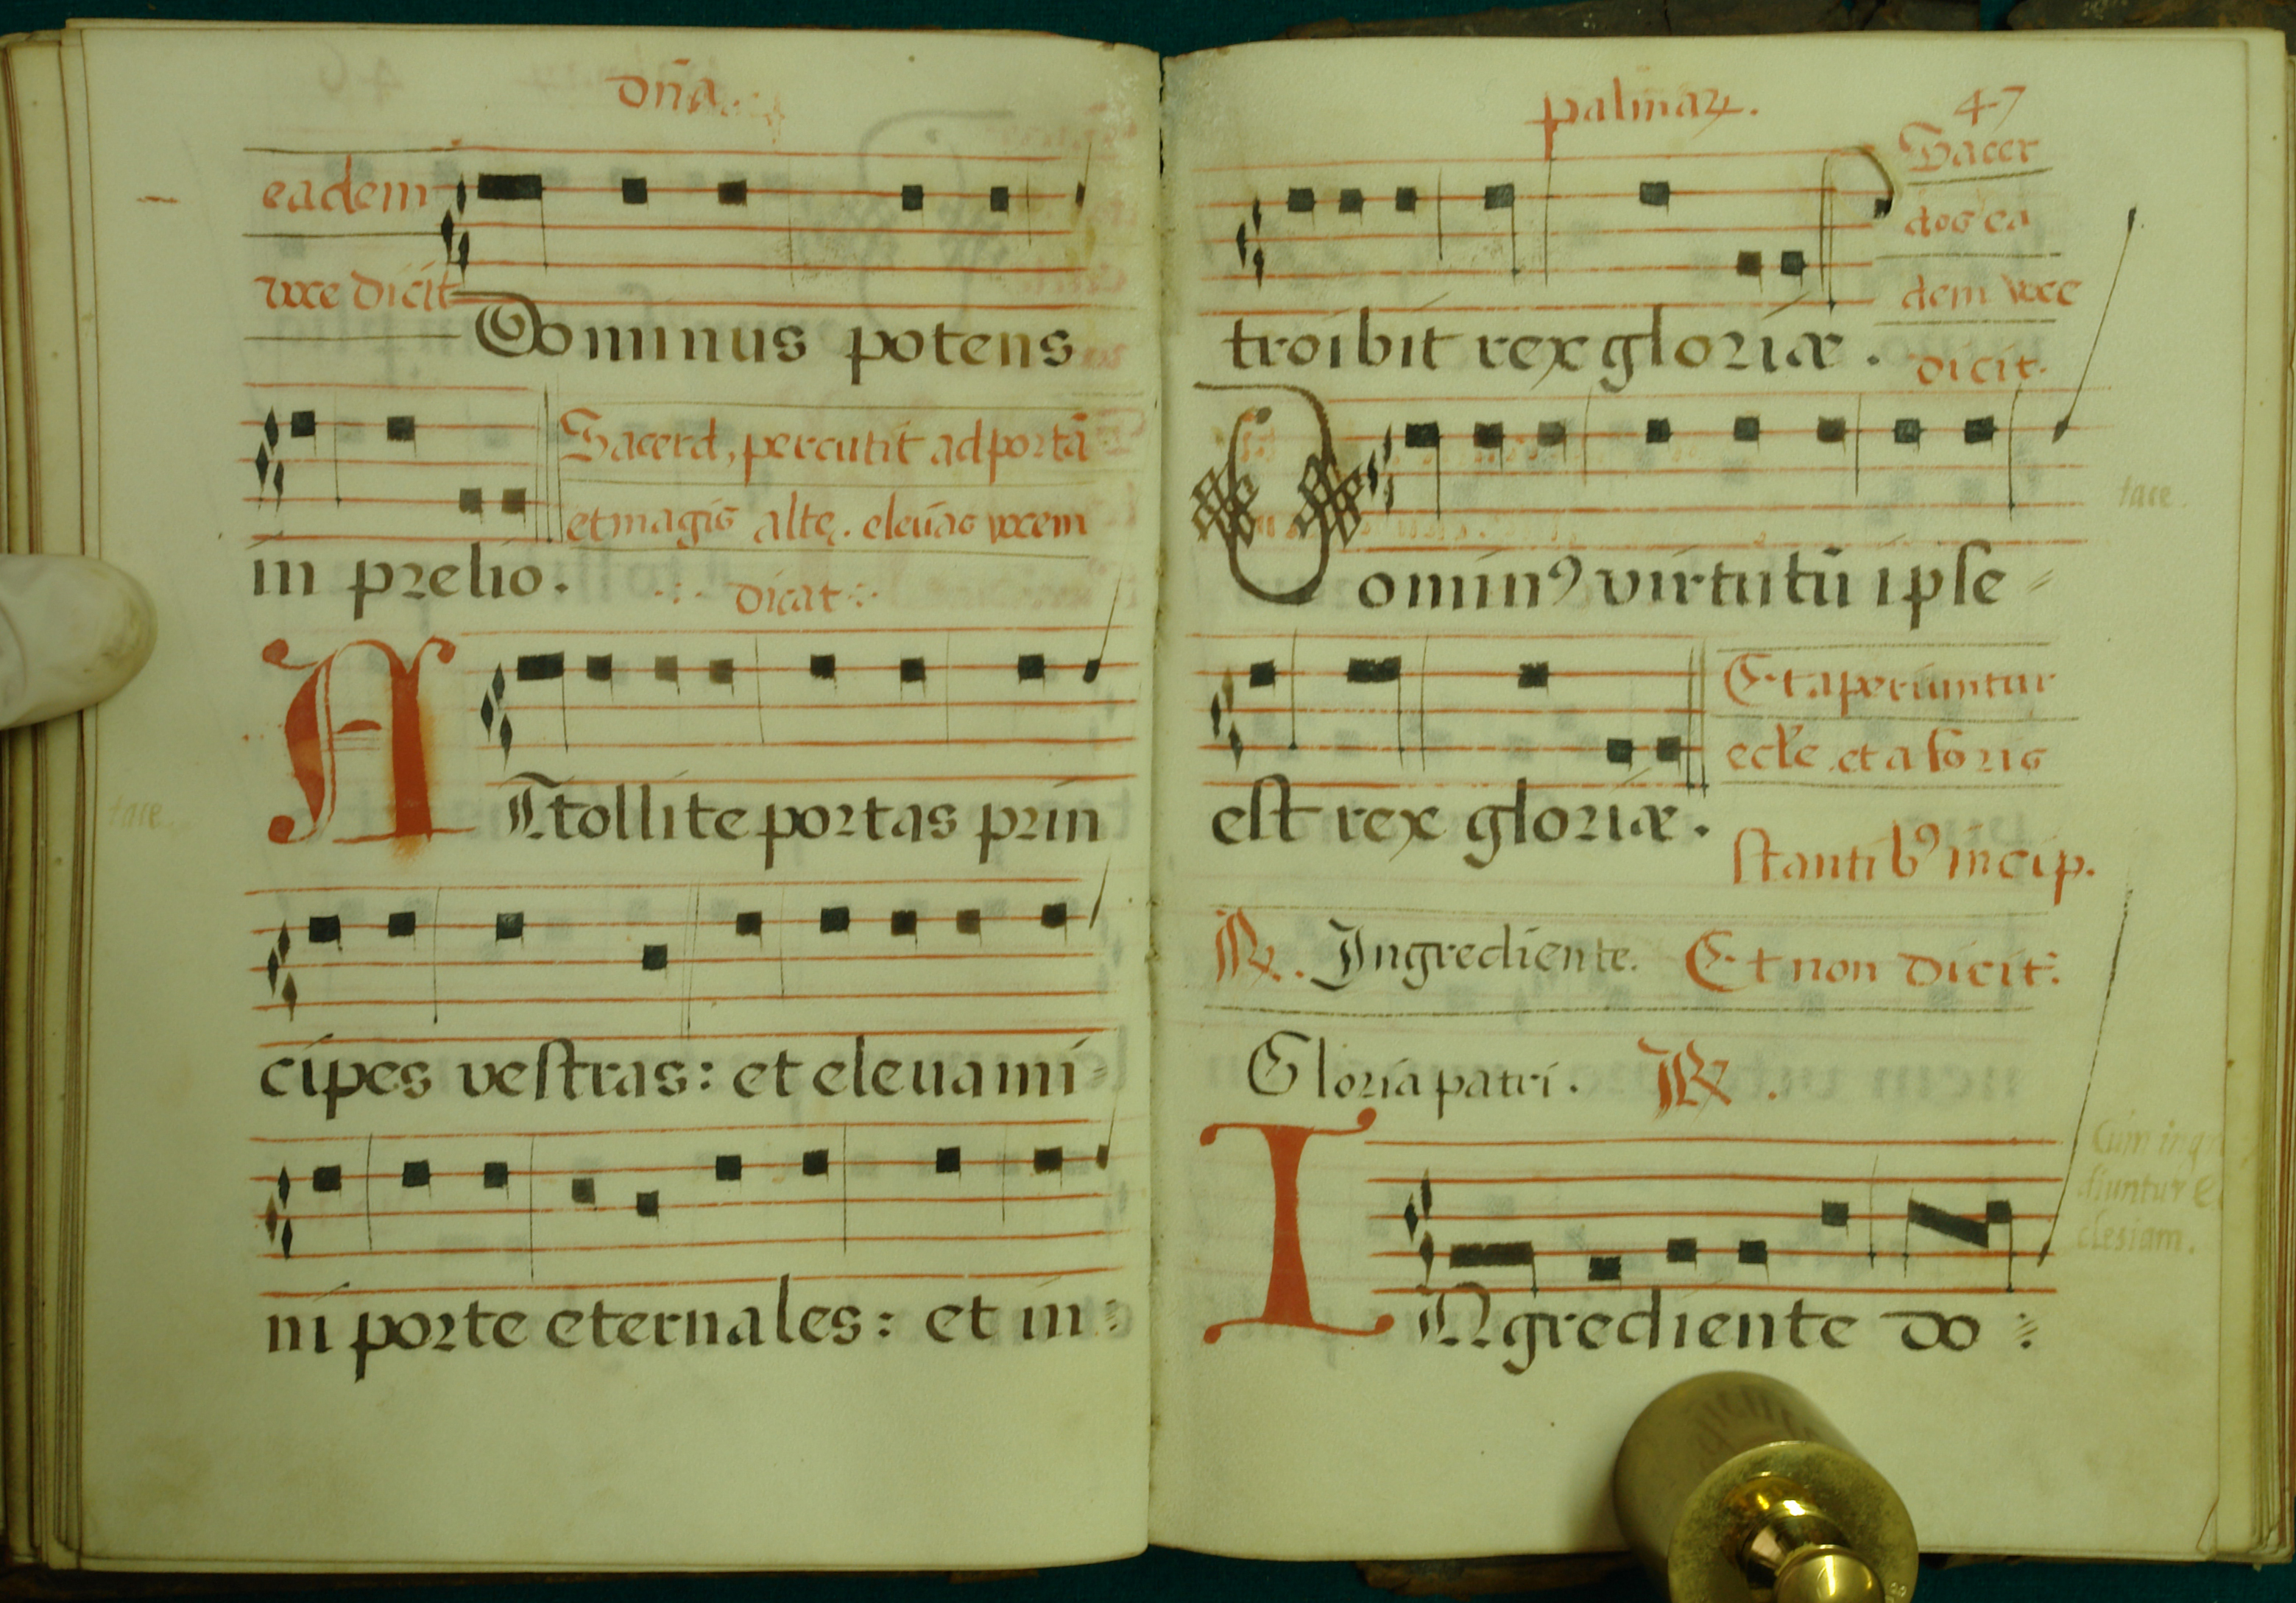 dn̄a
eadem
voce dicit
Dominus potens
Sacerd, percutit ad portā
et magis alte. eleuās vocem
in prelio.
dicat:
ATtollite portas prin
cipes vestras: et eleuami
tace
ni porte eternales: et in:
palmaꝝ.
47
Sacer
dos ea
dem voce
dicit.
troibit rex gloriæ.
tace
Dominꝰ virtutū ipse
Et aperiuntur
eclᷓe et a foris
est rex gloriæ.
stantibꝰ incip.
℟. Ingrediente. Et non dicit:
Gloria patri. ℟.
Cum ingre
diuntur e
clesiam.
INgrediente do: